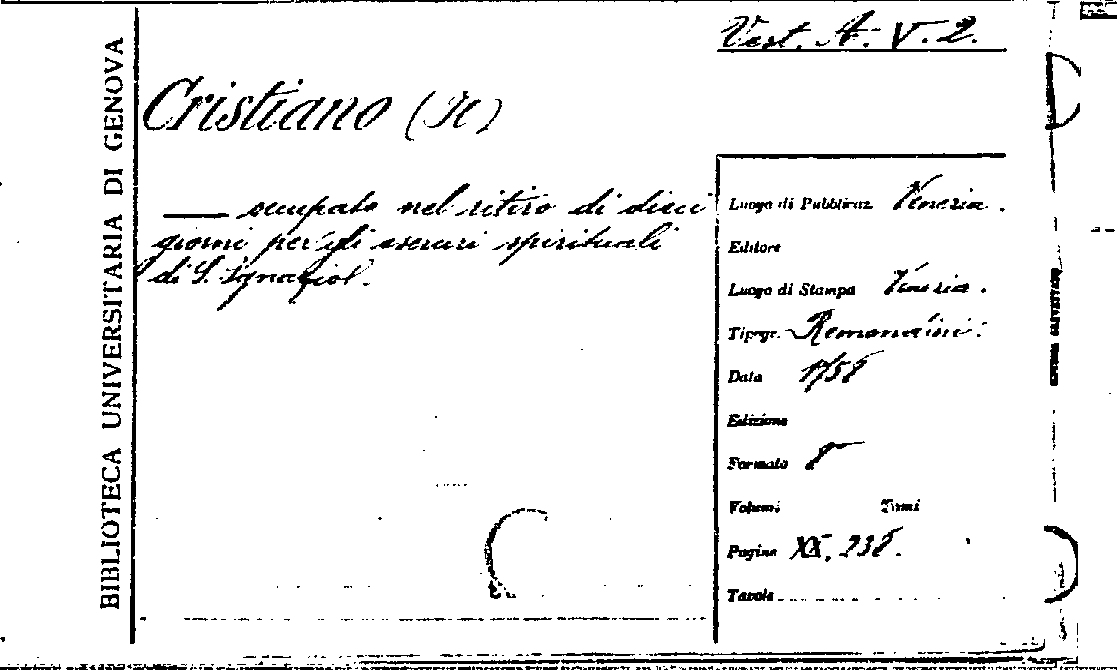 Vest. A. V. 2.
BIBLIOTECA UNIVERSITARIA DI GENOVA
Cristiano (Il)
— occupato nel ritiro di dieci
giorni per gli esercizi spirituali
di S. Ignazio.
Luogo di Pubblicaz. Venezia.
Editore
Luogo di Stampa Venezia.
Tipogr. Remondini.
Data 1758
Edizione
Formato 8
Volumi Tomi
Pagine XX, 238.
Tavole